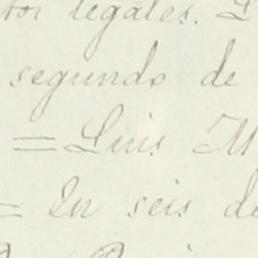 legales.
segundo de
= Luis M
= En seis de